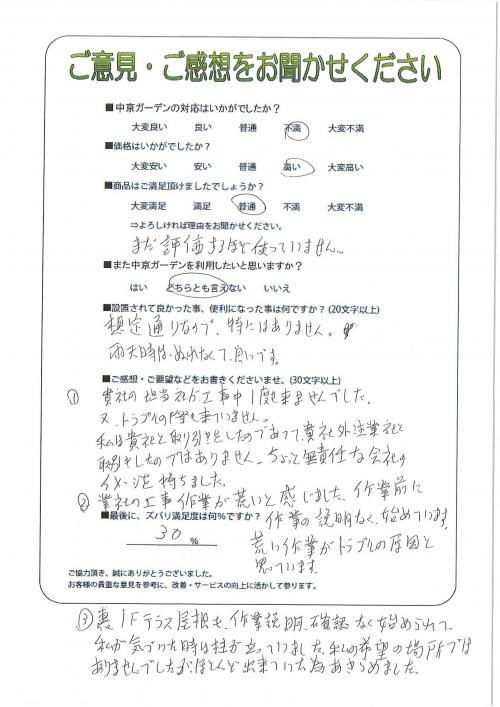 ご意見・ご感想をお聞かせください
■中京ガーデンの対応はいかがでしたか？
大変良い 良い 普通 不満 大変不満
■価格はいかがでしたか？
大変安い 安い 普通 高い 大変高い
■商品はご満足頂けましたでしょうか？
大変満足 満足 普通 不満 大変不満
⇒よろしければ理由をお聞かせください。
まだ評価するほど使っていません。
■また中京ガーデンを利用したいと思いますか？
はい どちらとも言えない いいえ
■設置されて良かった事、便利になった事は何ですか？(20文字以上)
想定通りなので、特にはありません。
雨天時はぬれなくて、良いです。
■ご感想・ご要望などをお書きくださいませ。(30文字以上)
① 貴社の担当社が工事中1度も来ませんでした。
又、トラブルの際も来ていません。
私は貴社と取り引きをしたのであって、貴社外注業社と
取引をしたのではありません。ちょっと無責任な会社の
イメージを持ちました。
② 業社の工事作業が荒いと感じました、作業前に
作業の説明なく、始めています。
荒い作業がトラブルの原因と
思っています。
■最後に、ズバリ満足度は何％ですか？
30 ％
ご協力頂き、誠にありがとうございました。
お客様の貴重な意見を参考に、改善・サービスの向上に活かして参ります。
③ 裏1Fテラス屋根も、作業説明、確認なく始められて、
私が気づいた時は柱が立っていました。私の希望の場所では
ありませんでしたがほとんど出来ていた為あきらめました。